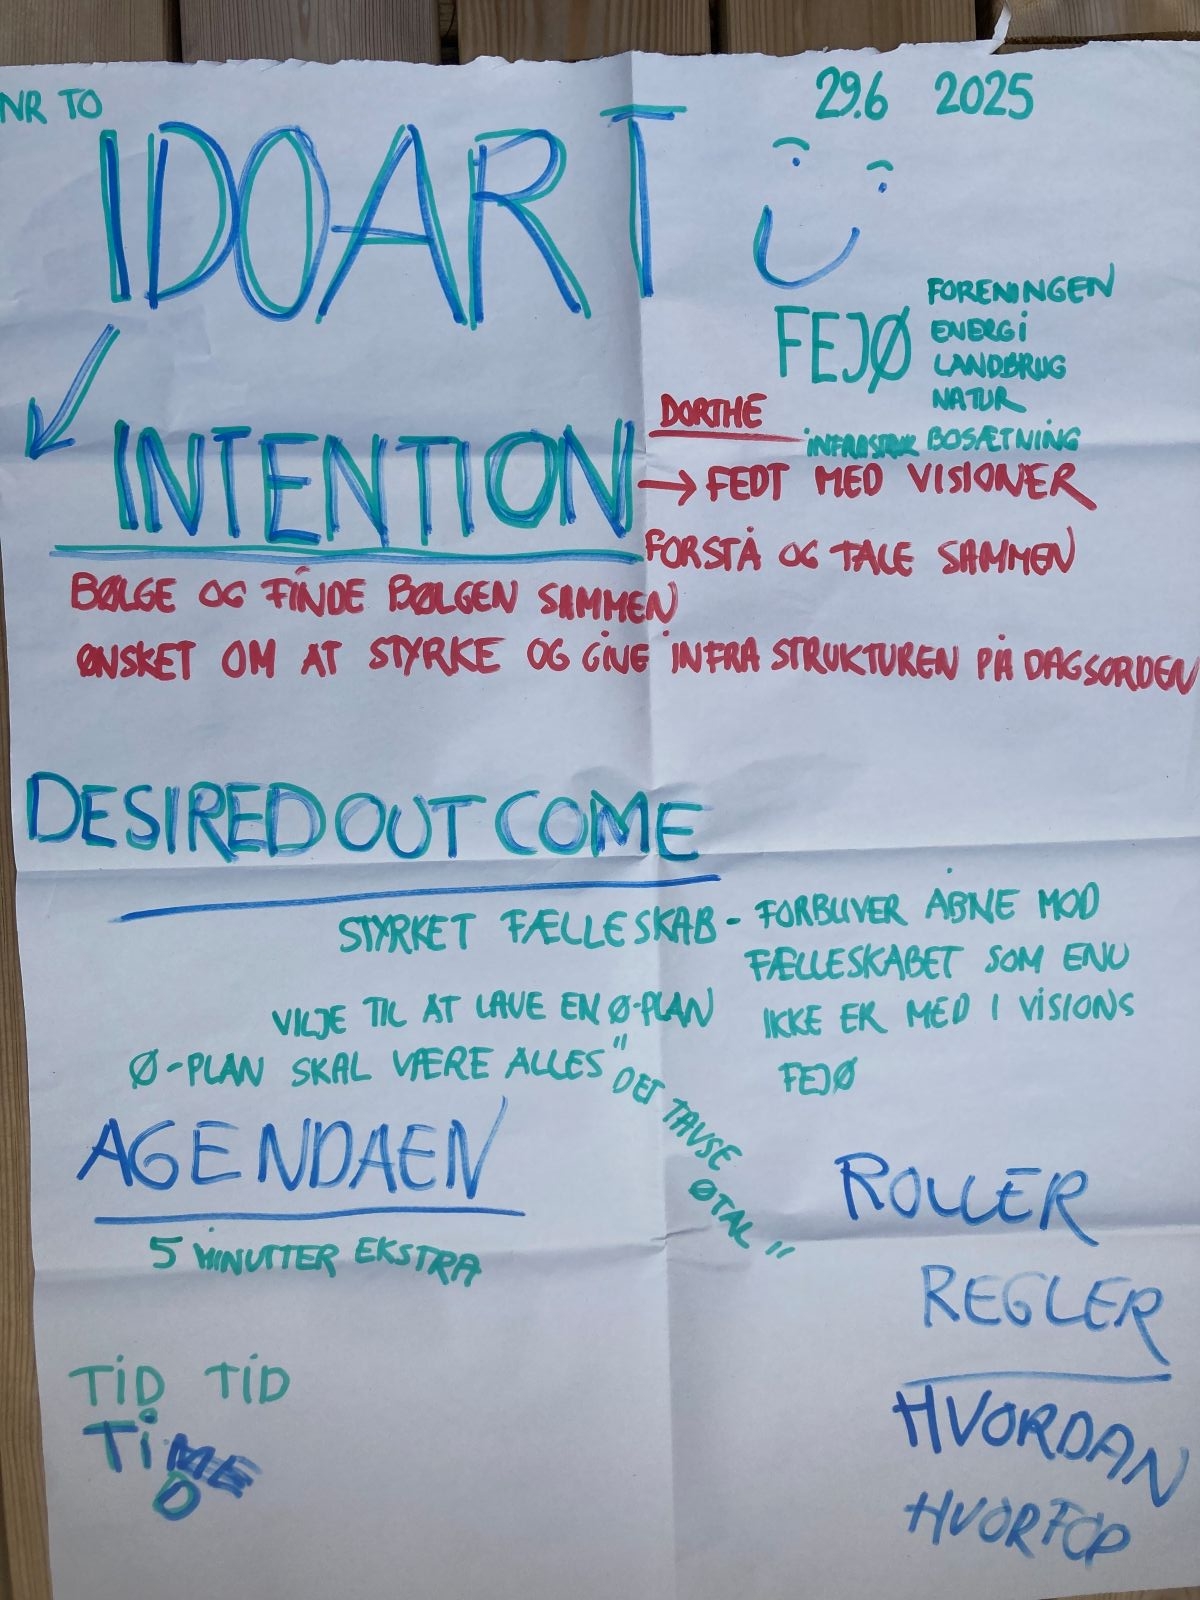 NR TO
29.6 2025
IDOART
FEJØ
FORENINGEN
ENERGI
LANDBRUG
NATUR
INFRASTRUK BOSÆTNING
DORTHE
INTENTION
→ FEDT MED VISIONER
FORSTÅ OG TALE SAMMEN
BØLGE OG FINDE BØLGEN SAMMEN
ØNSKET OM AT STYRKE OG GIVE INFRA STRUKTUREN PÅ DAGSORDEN
DESIRED OUT COME
STYRKET FÆLLESKAB - FORBLIVER ÅBNE MOD
FÆLLESKABET SOM ENU
IKKE ER MED I VISIONS
FEJØ
VILJE TIL AT LAVE EN Ø-PLAN
Ø-PLAN SKAL VÆRE ALLES
"DET TAVSE
ØTAL"
AGENDAEN
5 MINUTTER EKSTRA
ROLLER
REGLER
TID TID
TIME
D
HVORDAN
HVORFOR